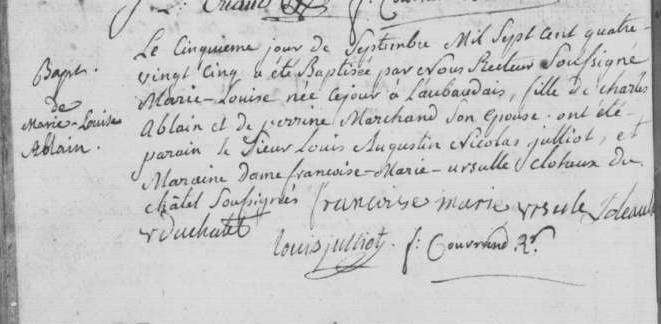 Bapt.
de
Marie-Louise
Ablain.
Le Cinquieme jour de Septembre Mil Sept Cent quatre-
vingt Cinq a été Baptisée par Nous Recteur Soussigné
Marie-Louise née cejour à Laubaudais, fille de charles
Ablain et de perrine Marchand Son epouse. ont été
parain le Sieur Louis Augustin Nicolas julliot, et
Maraine dame francoise-Marie-ursulle cloheux du
châtel Soussignés francoise marie ursule
duchatel
louis julliot. f: Couvrand Rr.